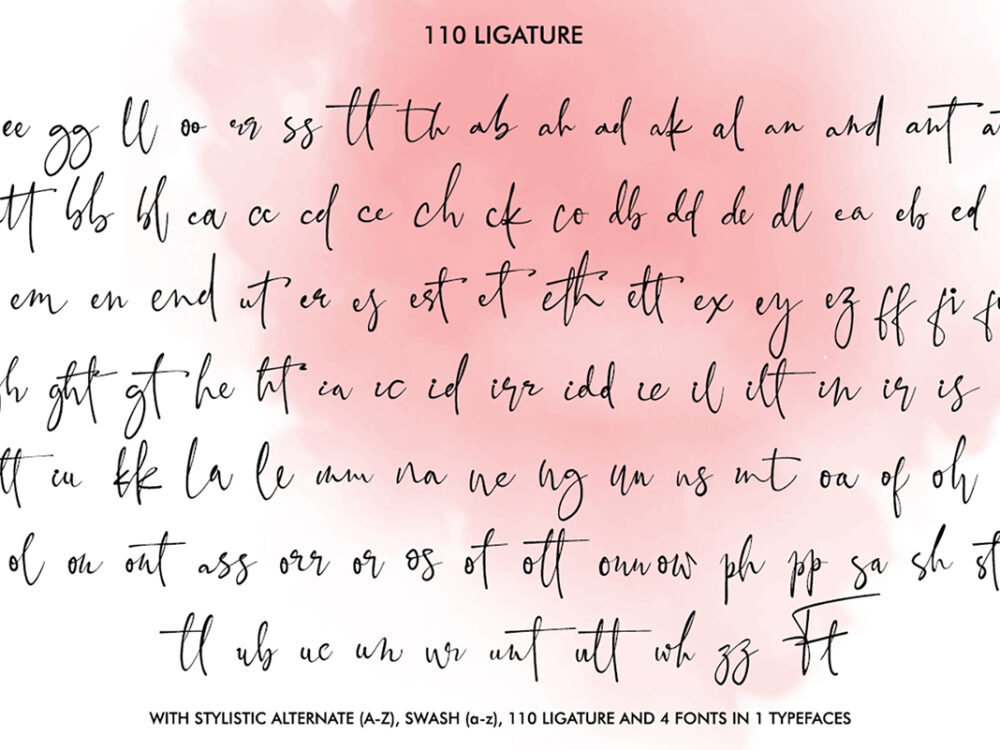 110 LIGATURE
ee gg ll oo err ss tt th ab ah ad ak al an and ant
tt bb bl ca cc cd ce ch ck co db dd de dl ea eb ed
em en end et er es est et eth ett ex ey ez ff fi
ght gt he ht ia ic id irr idd ie il ilt in ir is
tt iu kk la le mm na ne ng nn ns nt oa of oh
ol on ont ass orr or os ot ott ow ph pp sa sh st
tl ub uc un ur unt utt wh zz Ft
WITH STYLISTIC ALTERNATE (A-Z), SWASH (a-z), 110 LIGATURE AND 4 FONTS IN 1 TYPEFACES